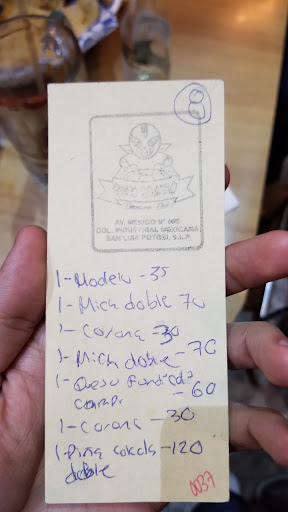 AV. MEXICO Nº 605
COL. INDUSTRIAL MEXICANA,
SAN LUIS POTOSI, S.L.P.
1-Modelo -35
1-Mich doble 70
1-Corona -30
1-Mich doble -70
1-Queso Fund
-60
1-Corona -30
1-Piña -120
doble
0037